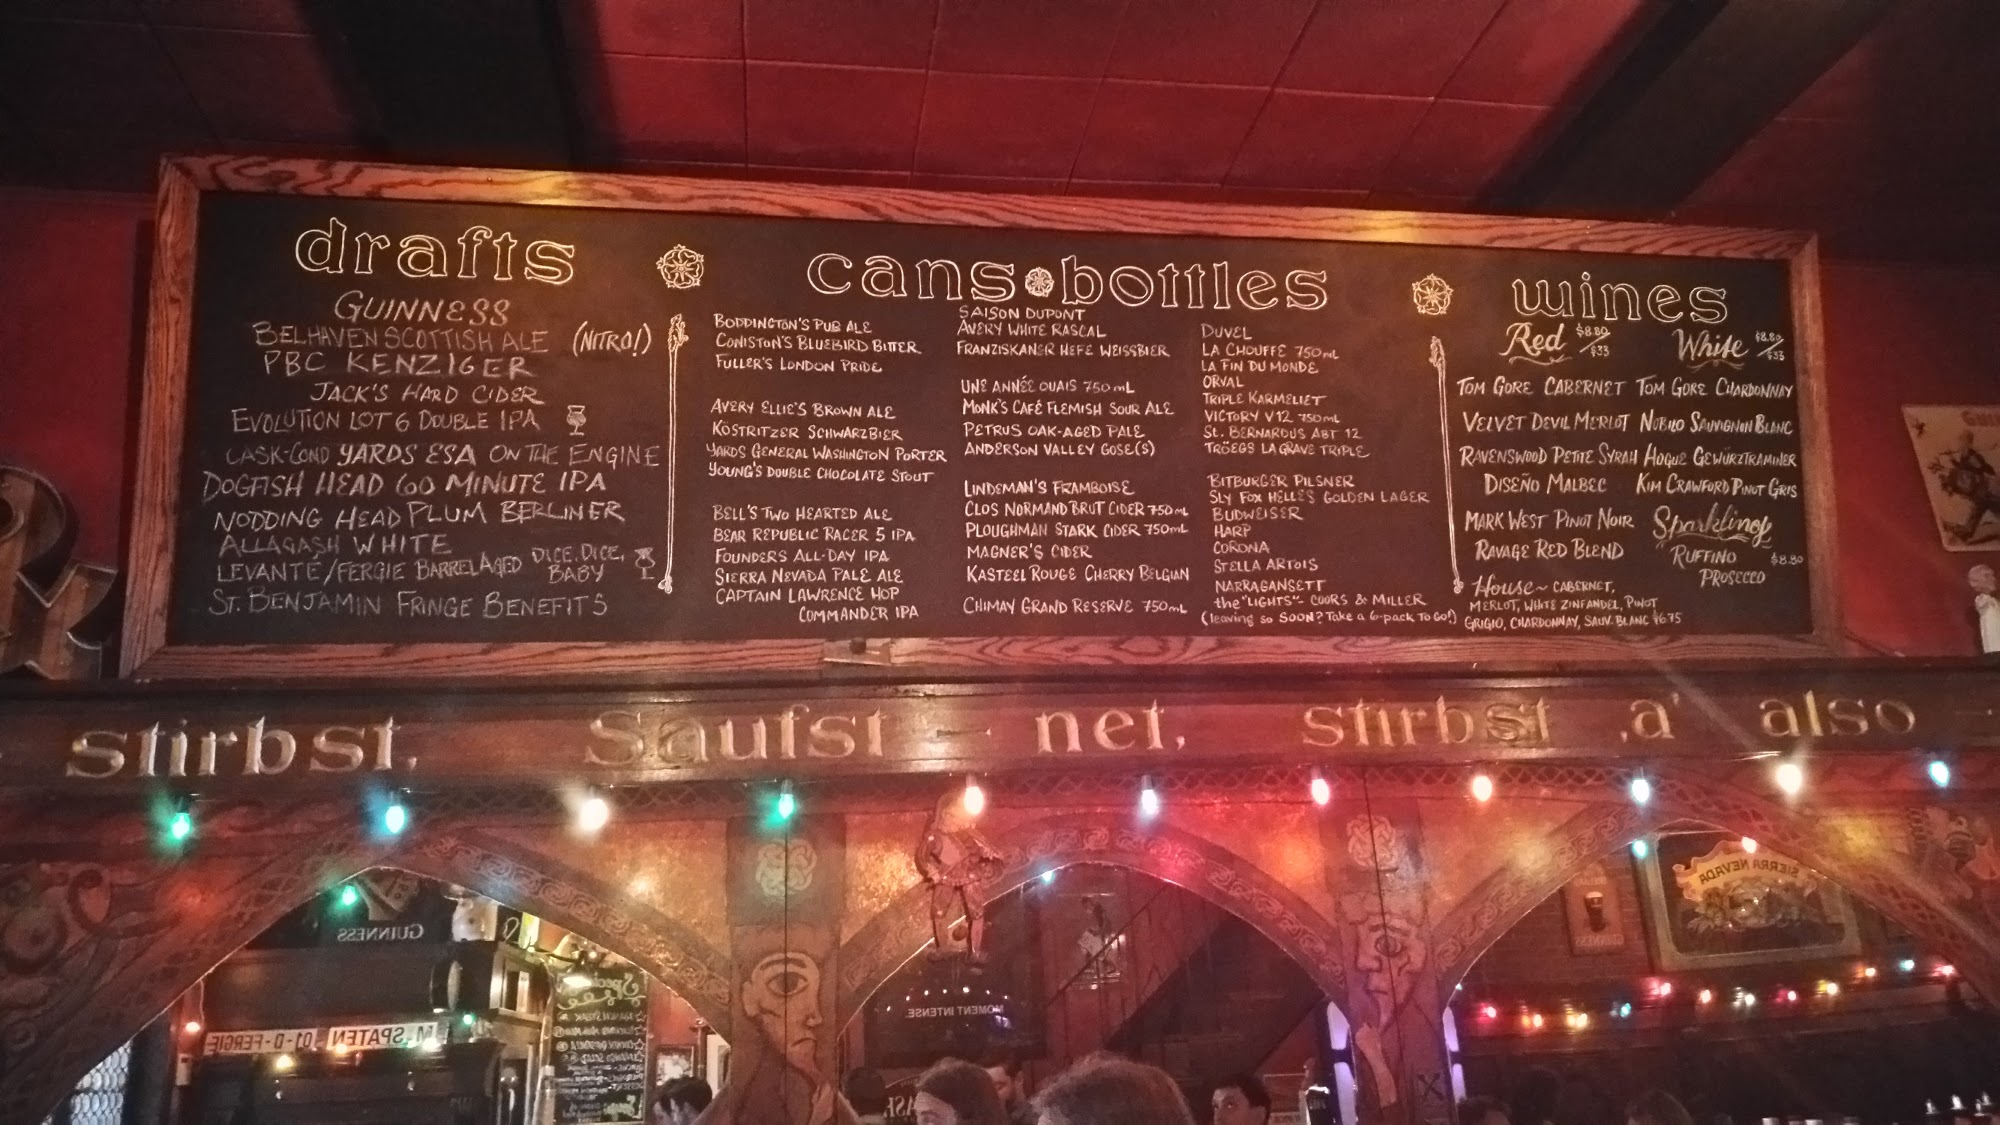 drafts
GUINNESS
BELHAVEN SCOTTISH ALE (NITRO!)
PBC KENZIGER
JACK'S HARD CIDER
EVOLUTION LOT 6 DOUBLE IPA
CASK-COND YARDS ESA ON THE ENGINE
DOGFISH HEAD 60 MINUTE IPA
NODDING HEAD PLUM BERLINER
ALLAGASH WHITE
LEVANTE/FERGIE BARREL AGED DICE, DICE,
BABY
ST. BENJAMIN FRINGE BENEFITS
cans bottles
BODDINGTON'S PUB ALE
CONISTON'S BLUEBIRD BITTER
FULLER'S LONDON PRIDE
AVERY ELLIE'S BROWN ALE
KOSTRITZER SCHWARZBIER
YARDS GENERAL WASHINGTON PORTER
YOUNG'S DOUBLE CHOCOLATE STOUT
BELL'S TWO HEARTED ALE
BEAR REPUBLIC RACER 5 IPA
FOUNDERS ALL-DAY IPA
SIERRA NEVADA PALE ALE
CAPTAIN LAWRENCE HOP
COMMANDER IPA
SAISON DUPONT
AVERY WHITE RASCAL
FRANZISKANER HEFE WEISSBIER
UNE ANNÉE OUAIS 750mL
MONK'S CAFÉ FLEMISH SOUR ALE
PETRUS OAK-AGED PALE
ANDERSON VALLEY GOSE(S)
LINDEMAN'S FRAMBOISE
CLOS NORMAND BRUT CIDER 750mL
PLOUGHMAN STARK CIDER 750mL
MAGNER'S CIDER
KASTEEL ROUGE CHERRY BELGIAN
CHIMAY GRAND RESERVE 750mL
DUVEL
LA CHOUFFE 750mL
LA FIN DU MONDE
ORVAL
TRIPLE KARMELIET
VICTORY V12 750mL
ST. BERNARDUS ABT 12
TRÖEGS LA GRAVE TRIPLE
BITBURGER PILSNER
SLY FOX HELLES GOLDEN LAGER
BUDWEISER
HARP
CORONA
STELLA ARTOIS
NARRAGANSETT
the "LIGHTS" - COORS & MILLER
(leaving so SOON? Take a 6-pack TO Go!)
wines
Red $8.80/$33
TOM GORE CABERNET
VELVET DEVIL MERLOT
RAVENSWOOD PETITE SYRAH
DISEÑO MALBEC
MARK WEST PINOT NOIR
RAVAGE RED BLEND
House~ CABERNET,
MERLOT, WHITE ZINFANDEL, PINOT
GRIGIO, CHARDONNAY, SAUV. BLANC $6.75
White $8.80/$33
TOM GORE CHARDONNAY
NOBILO SAUVIGNON BLANC
HOGUE GEWÜRZTRAMINER
KIM CRAWFORD PINOT GRIS
Sparkling
RUFFINO $8.80
PROSECCO
stirbst, Saufst - net, stirbst ,a' also
GUINNESS
SIERRA NEVADA
GUINNESS
MOMENT INTENSE.
01-D-FERGIE
M SPATEN
Specials